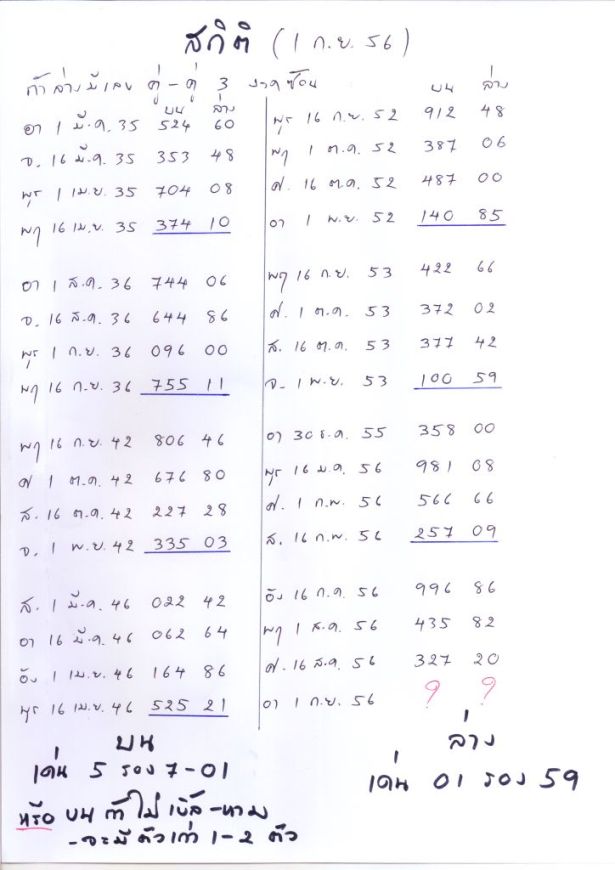 สถิติ (1 ก.ย. 56)
ถ้าล่างมีเลข คู่-คู่ 3 งวดซ้อน
บน ล่าง
อา 1 มี.ค. 35 524 60
จ. 16 มี.ค. 35 353 48
พุธ 1 เม.ย. 35 704 08
พฤ 16 เม.ย. 35 374 10
อา 1 ส.ค. 36 744 06
จ. 16 ส.ค. 36 644 86
พุธ 1 ก.ย. 36 096 00
พฤ 16 ก.ย. 36 755 11
พฤ 16 ก.ย. 42 806 46
ศ 1 ต.ค. 42 676 80
ส. 16 ต.ค. 42 227 28
จ. 1 พ.ย. 42 335 03
ส. 1 มี.ค. 46 022 42
อา 16 มี.ค. 46 062 64
อัง 1 เม.ย. 46 164 86
พุธ 16 เม.ย. 46 525 21
บน ล่าง
พุธ 16 ก.ย. 52 912 48
พฤ 1 ต.ค. 52 387 06
ศ. 16 ต.ค. 52 487 00
อา 1 พ.ย. 52 140 85
พฤ 16 ก.ย. 53 422 66
ศ. 1 ต.ค. 53 372 02
ส. 16 ต.ค. 53 377 42
จ. 1 พ.ย. 53 100 59
อา 30 ธ.ค. 55 358 00
พุธ 16 ม.ค. 56 981 08
ศ. 1 ก.พ. 56 566 66
ส. 16 ก.พ. 56 257 09
อัง 16 ก.ค. 56 996 86
พฤ 1 ส.ค. 56 435 82
ศ. 16 ส.ค. 56 327 20
อา 1 ก.ย. 56 ? ?
บน
เด่น 5 รอง 7-01
หรือ บน ถ้าไม่เบิ้ล-หาม
-จะมีตัวเก่า 1-2 ตัว
ล่าง
เด่น 01 รอง 59